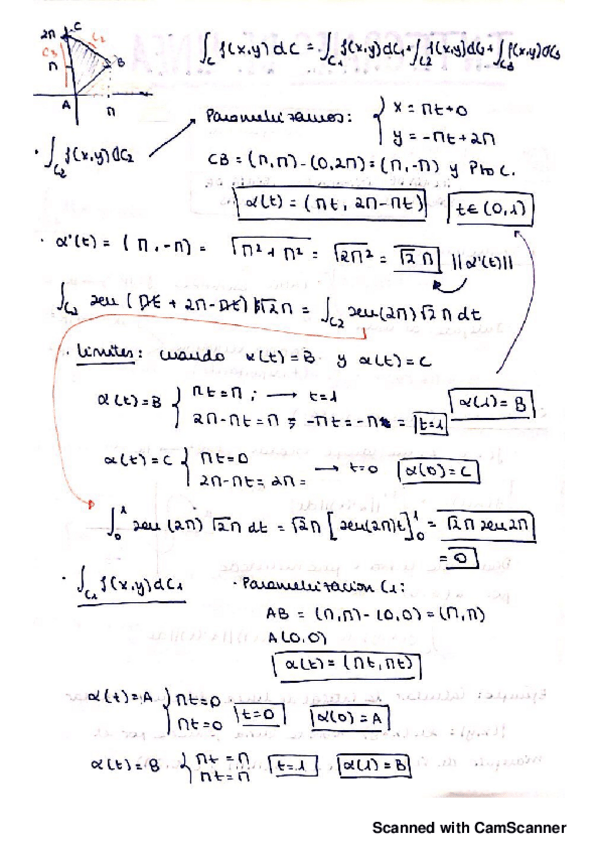 2π C
C3 C2
π B
A π
∫_C f(x,y) dC = ∫_C1 f(x,y) dC1 + ∫_C2 f(x,y) dC2 + ∫_C3 f(x,y) dC3
Parametrizamos: { x = πt+0
y = -πt+2π
· ∫_C2 f(x,y) dC2
CB = (π,π) - (0,2π) = (π,-π) y Pto C.
α(t) = (πt, 2π-πt) t∈(0,1)
· α'(t) = (π,-π) = √π²+π² = √2π² = √2 π ||α'(t)||
∫_C2 sen (πt + 2π - πt) √2π = ∫_C2 sen(2π) √2 π dt
· Límites: cuando α(t)=B y α(t)=C
α(t)=B { πt=π ; → t=1
2π-πt=π ; -πt=-π = t=1
α(1)=B
α(t)=C { πt=0
2π-πt=2π =
→ t=0 α(0)=C
∫₀¹ sen(2π) √2π dt = √2π [sen(2π)t]₀¹ = √2π sen2π
= 0
· ∫_C1 f(x,y) dC1 · Parametrización C1:
AB = (π,π) - (0,0) = (π,π)
A(0,0)
α(t) = (πt, πt)
α(t)=A { πt=0
πt=0
t=0 α(0)=A
α(t)=B { πt=π
πt=π
t=1 α(1)=B
Scanned with CamScanner